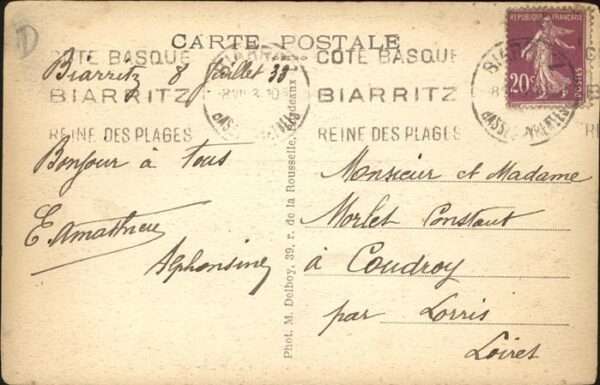 D
CARTE POSTALE
CÔTE BASQUE
BIARRITZ
REINE DES PLAGES
CÔTE BASQUE
BIARRITZ
REINE DES PLAGES
RÉPUBLIQUE FRANÇAISE
20c
POSTES
BIARRITZ
BASSES-PYRENEES
Biarritz 8 Juillet 38
Bonjour à tous
E. Amathieu
Alphonsine
Phot. M. Delboy, 39, r. de la Rousselle, Bordeaux
Monsieur et Madame
Morlet Constant
à Coudroy
par Lorris
Loiret